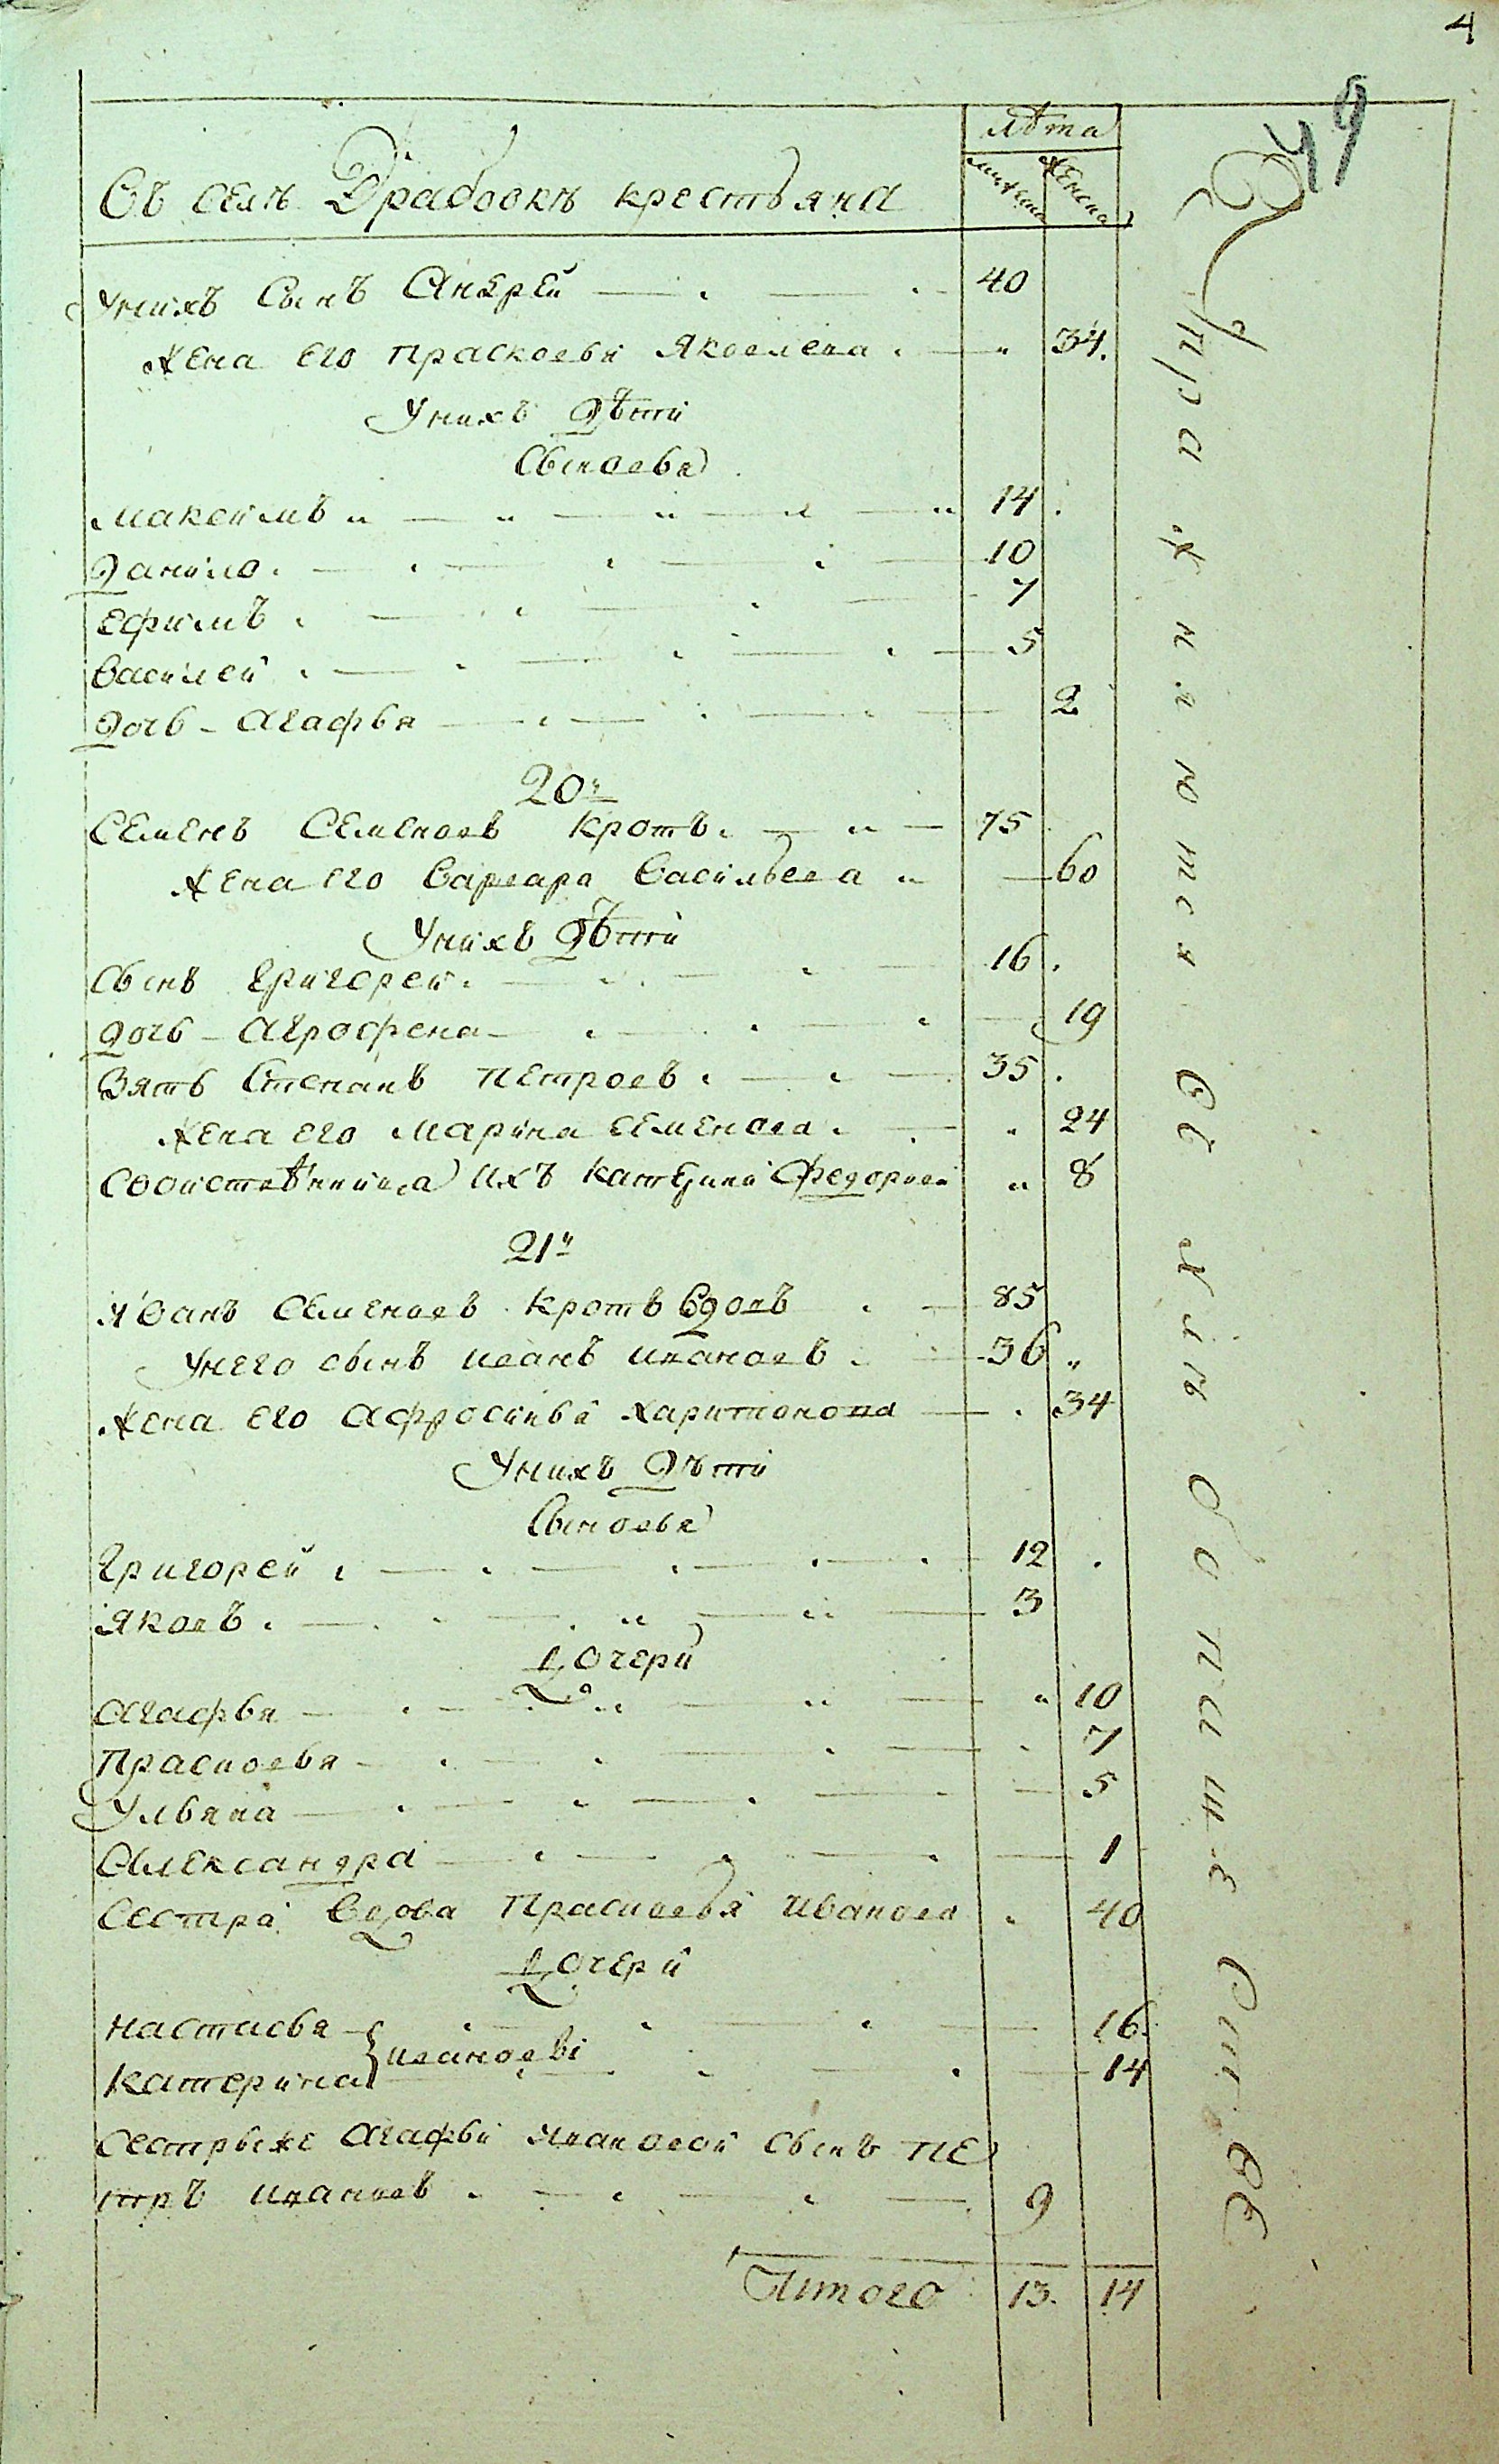 4
49
лѣта
Въ селѣ Драбовкѣ крестьяна
мужеска
женска
Унихъ Сынъ Андрей 40
Жена Его Прасковья Яковлева 34.
Унихъ Дѣти
Сыновья
Максимъ 14
Данило 10
Ефимъ 7
Василей 5
Дочь Агафья 2
20й
Семенъ Семеновъ Кротъ 75
Жена Его Варвара Васильева 60
Унихъ Дѣти
Сынъ Григорей 16
Дочь Агрофена 19
Зять Степанъ Петровъ 35
Жена Его Марина Семенова 24
Свойственница ихъ Катерина Федорова 8
21й
Иванъ Семеновъ Кротъ Вдовъ 85
Унего сынъ Иванъ Ивановъ 36
Жена Его Афросинья Харитонова 34
Унихъ Дѣти
Сыновья
Григорей 12
Яковъ 3
Дочери
Агафья 10
Прасковья 7
Ульяна 5
Александра 1
Сестра Вдова Прасковья Иванова 40
Дочери
Настасья 16
Ивановы
Катерина 14
Сестрыже Агафьи Ивановой Сынъ Пе
тръ Ивановъ 9
Итого 13. 14